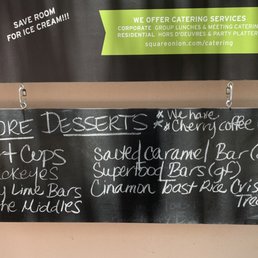 SAVE ROOM
FOR ICE CREAM!!!
WE OFFER CATERING SERVICES
CORPORATE GROUP LUNCHES & MEETING CATERING
RESIDENTIAL HORS D'OEUVRES & PARTY PLATTERS
squareonion.com/catering
ORE DESSERTS
*We have
*Cherry coffee
t Cups
ckeyes
y Lime Bars
the Middles
Salted Caramel Bar (
Superfood Bars (gf)
Cinnamon Toast Rice Cris
Trea